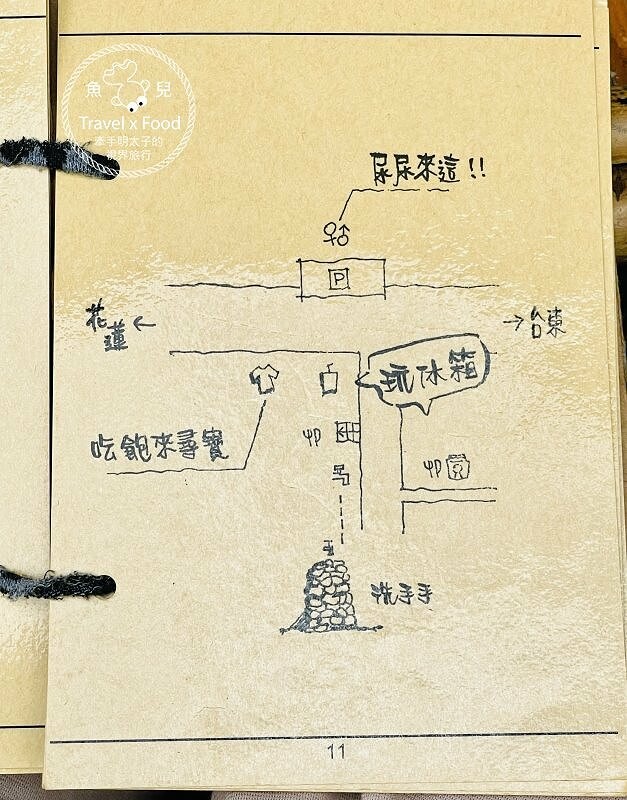 魚兒
Travel x Food
牽手明太子的
視界旅行
尿尿來這!!
P
花蓮
台東
玩冰箱
吃飽來尋寶
洗手手
11